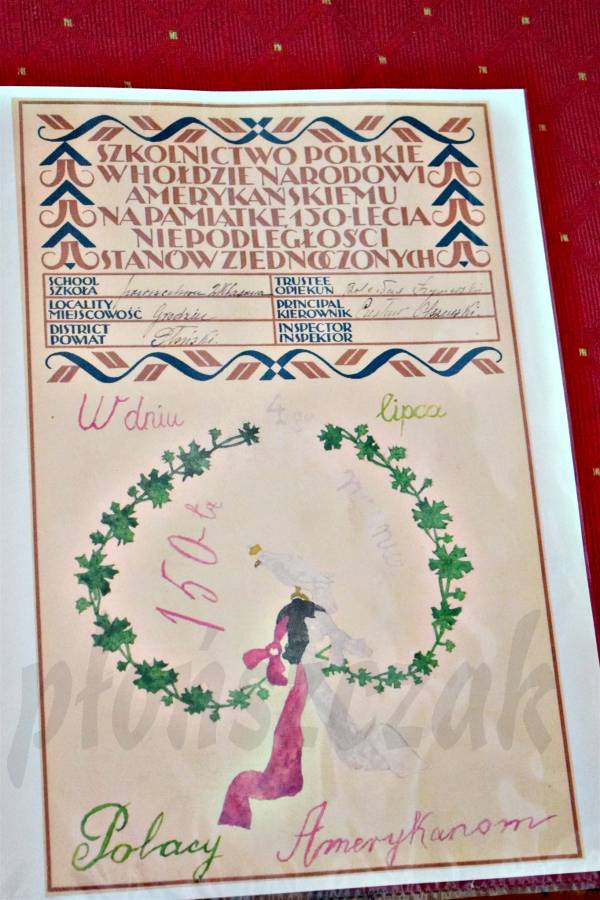 SZKOLNICTWO POLSKIE
W HOŁDZIE NARODOWI
AMERYKAŃSKIEMU
NA PAMIĄTKĘ 150-LECIA
NIEPODLEGŁOŚCI
STANÓW ZJEDNOCZONYCH
SCHOOL
SZKOŁA
TRUSTEE
OPIEKUN
LOCALITY
MIEJSCOWOŚĆ
PRINCIPAL
KIEROWNIK
DISTRICT
POWIAT Płoński.
INSPECTOR
INSPEKTOR
W dniu 4go lipca
150-tą
płońszczak
Polacy Amerykanom